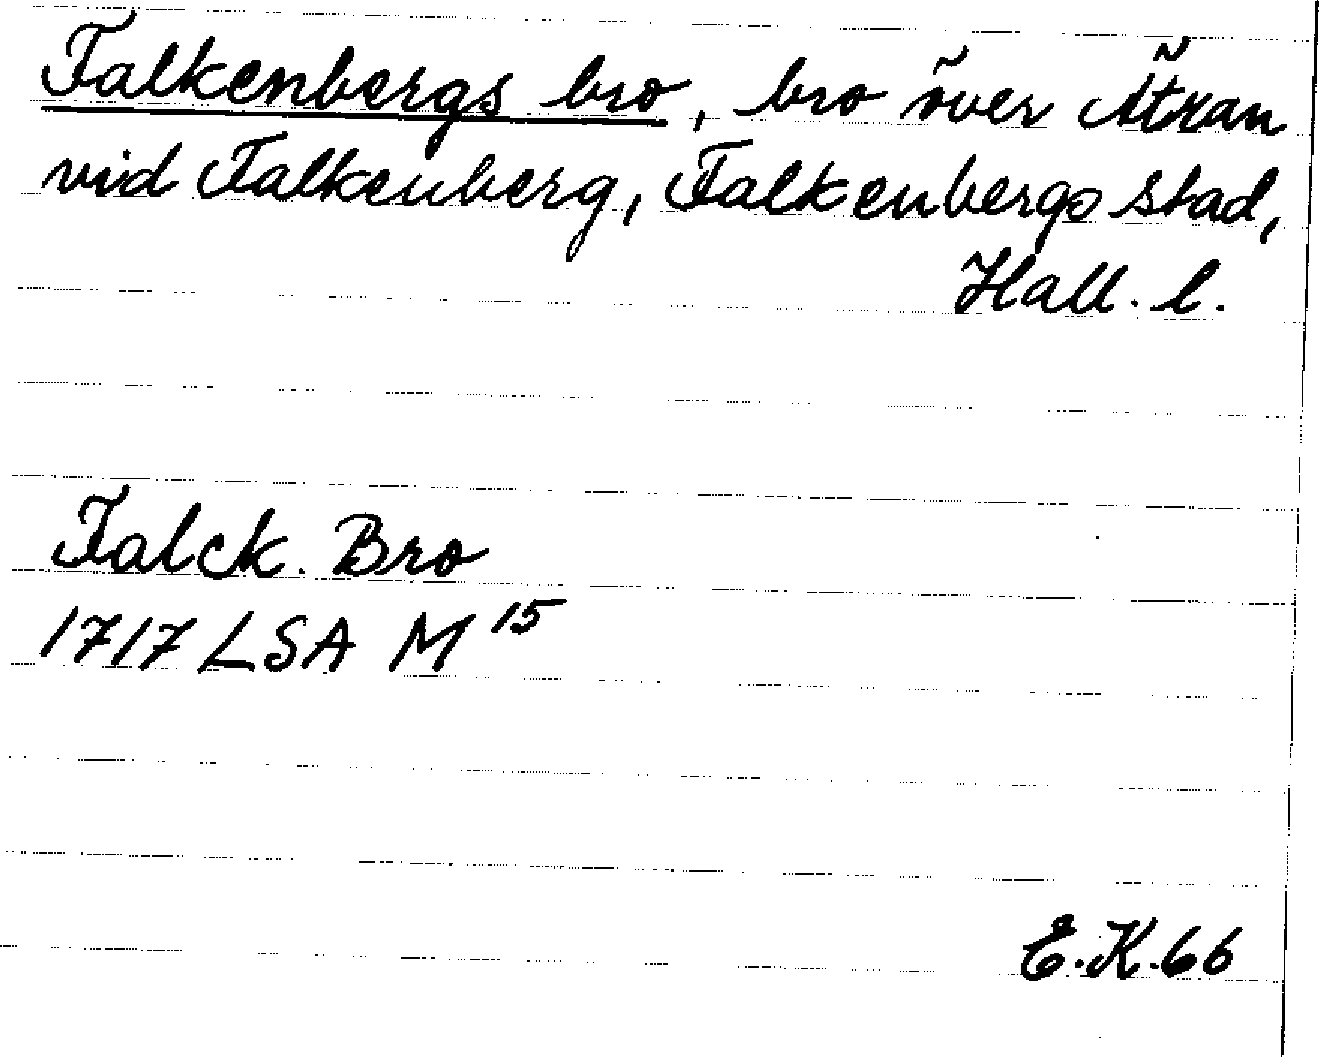 Falkenbergs bro, bro över Ätran
vid Falkenberg, Falkenbergs stad,
Hall. l.
Falck. Bro
1717 LSA M 15
E.K. 66